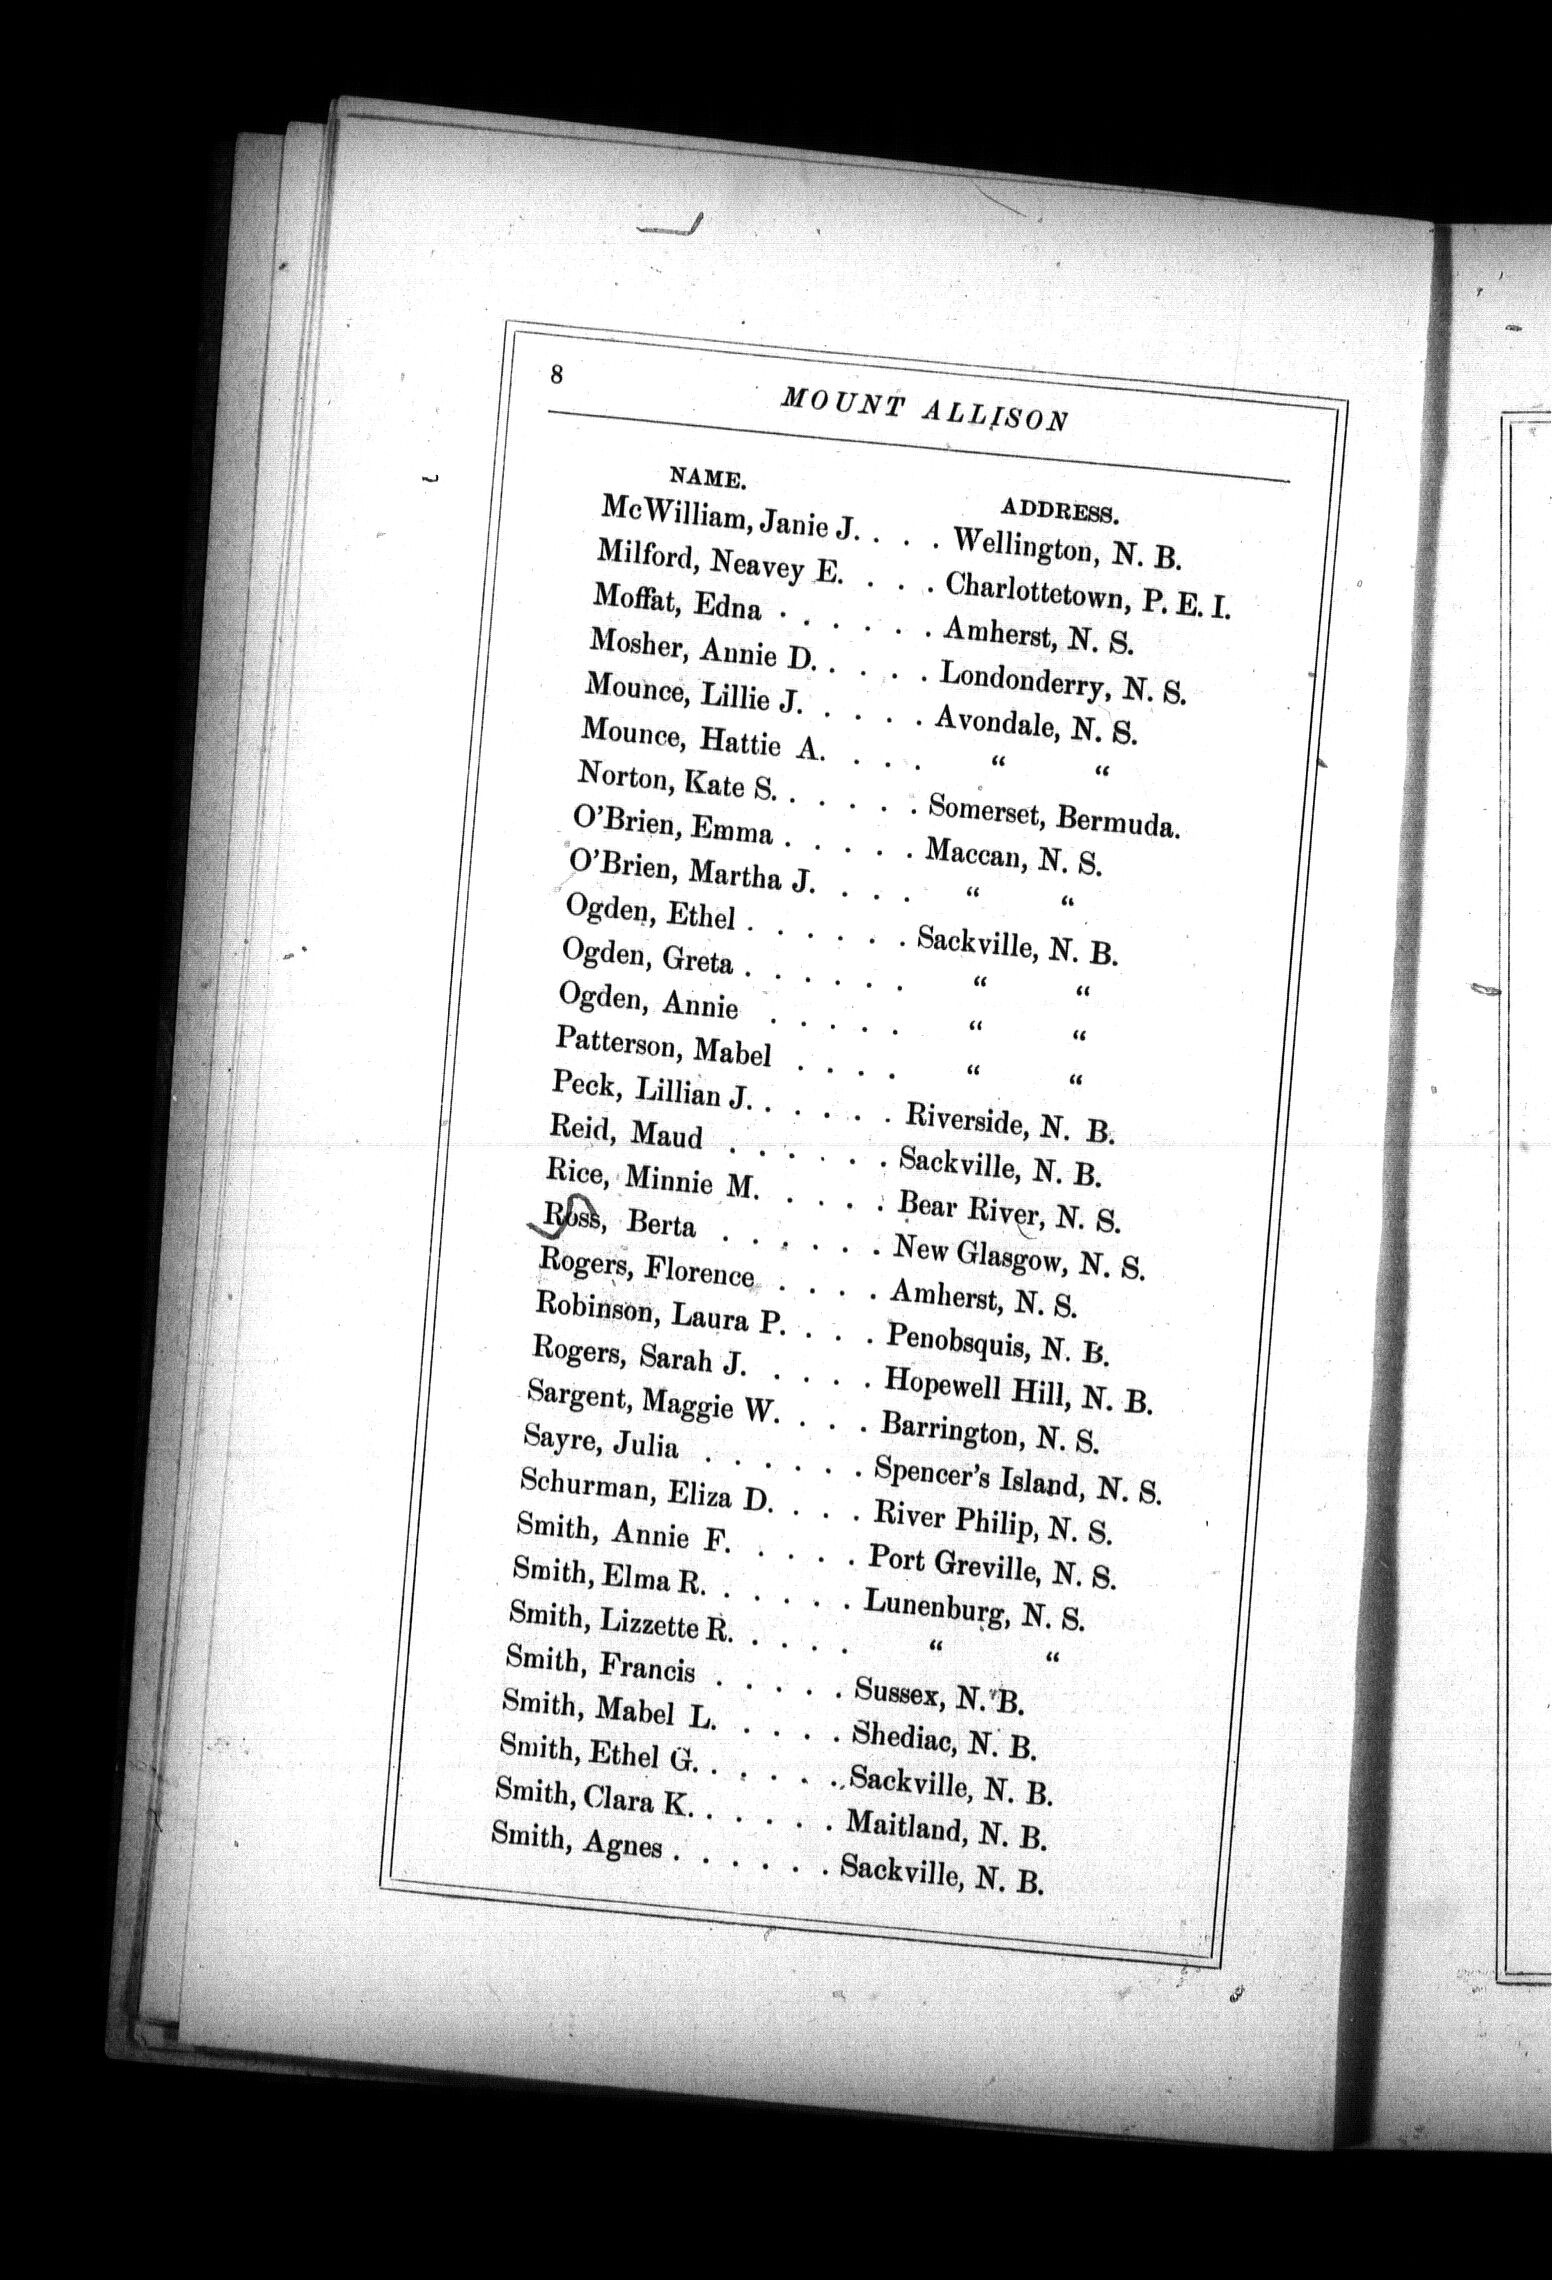 8 MOUNT ALLISON
NAME. ADDRESS.
McWilliam, Janie J. . . . Wellington, N. B.
Milford, Neavey E. . . . Charlottetown, P. E. I.
Moffat, Edna . . . . . . Amherst, N. S.
Mosher, Annie D. . . . . Londonderry, N. S.
Mounce, Lillie J. . . . . Avondale, N. S.
Mounce, Hattie A. . . . “ “
Norton, Kate S. . . . . . Somerset, Bermuda.
O’Brien, Emma . . . . . Maccan, N. S.
O’Brien, Martha J. . . . “ “
Ogden, Ethel . . . . . . Sackville, N. B.
Ogden, Greta . . . . . . “ “
Ogden, Annie . . . . . “ “
Patterson, Mabel . . . . “ “
Peck, Lillian J. . . . . . Riverside, N. B.
Reid, Maud . . . . . . Sackville, N. B.
Rice, Minnie M. . . . . Bear River, N. S.
Ross, Berta . . . . . . New Glasgow, N. S.
Rogers, Florence . . . . Amherst, N. S.
Robinson, Laura P. . . . Penobsquis, N. B.
Rogers, Sarah J. . . . . Hopewell Hill, N. B.
Sargent, Maggie W. . . . Barrington, N. S.
Sayre, Julia . . . . . . Spencer’s Island, N. S.
Schurman, Eliza D. . . . River Philip, N. S.
Smith, Annie F. . . . . Port Greville, N. S.
Smith, Elma R. . . . . . Lunenburg, N. S.
Smith, Lizzette R. . . . . “ “
Smith, Francis . . . . . Sussex, N. B.
Smith, Mabel L. . . . . Shediac, N. B.
Smith, Ethel G. . . . . . Sackville, N. B.
Smith, Clara K. . . . . . Maitland, N. B.
Smith, Agnes . . . . . . Sackville, N. B.